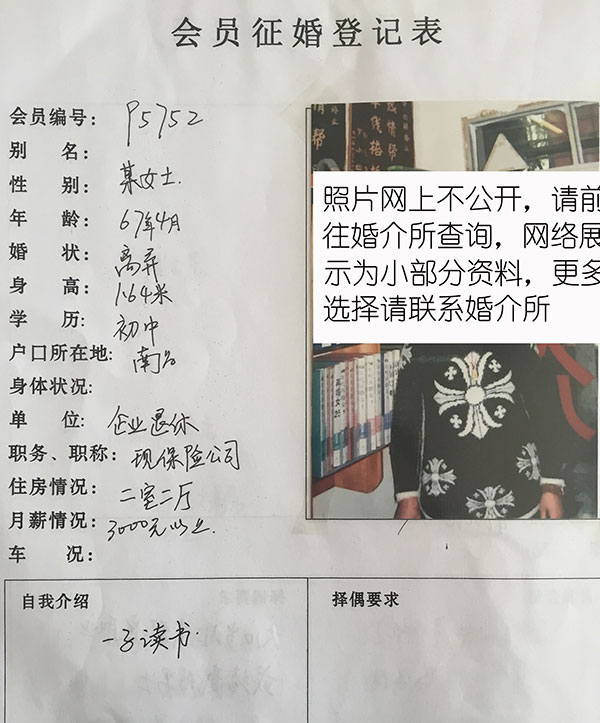 会员征婚登记表
会员编号: P5752
别 名:
性 别: 某女士.
年 龄: 67年4月
婚 状: 离异
身 高: 1.64米
学 历: 初中
户口所在地: 南昌
身体状况:
单 位: 企业退休
职务、职称: 现保险公司
住房情况: 二室二厅
月薪情况: 3000元以上
车 况:
照片网上不公开，请前
往婚介所查询，网络展
示为小部分资料，更多
选择请联系婚介所
自我介绍
一子读书.
择偶要求